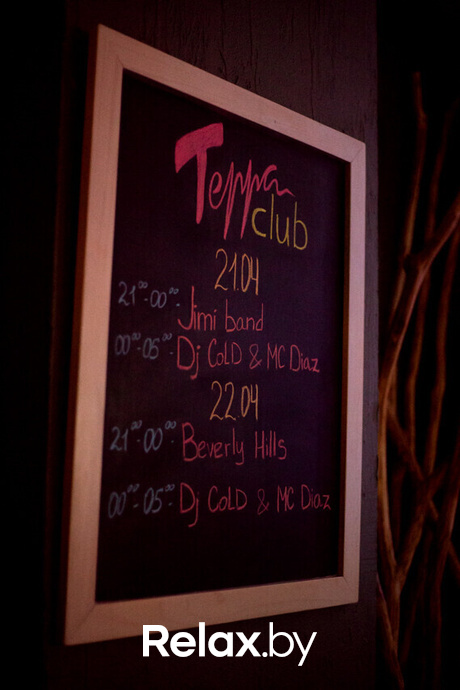 Teppa
club
21.04
21⁰⁰-00⁰⁰- Jimi band
00⁰⁰-05⁰⁰- Dj COLD & MC Diaz
22.04
21⁰⁰-00⁰⁰- Beverly Hills
00⁰⁰-05⁰⁰- Dj COLD & MC Diaz
Relax.by